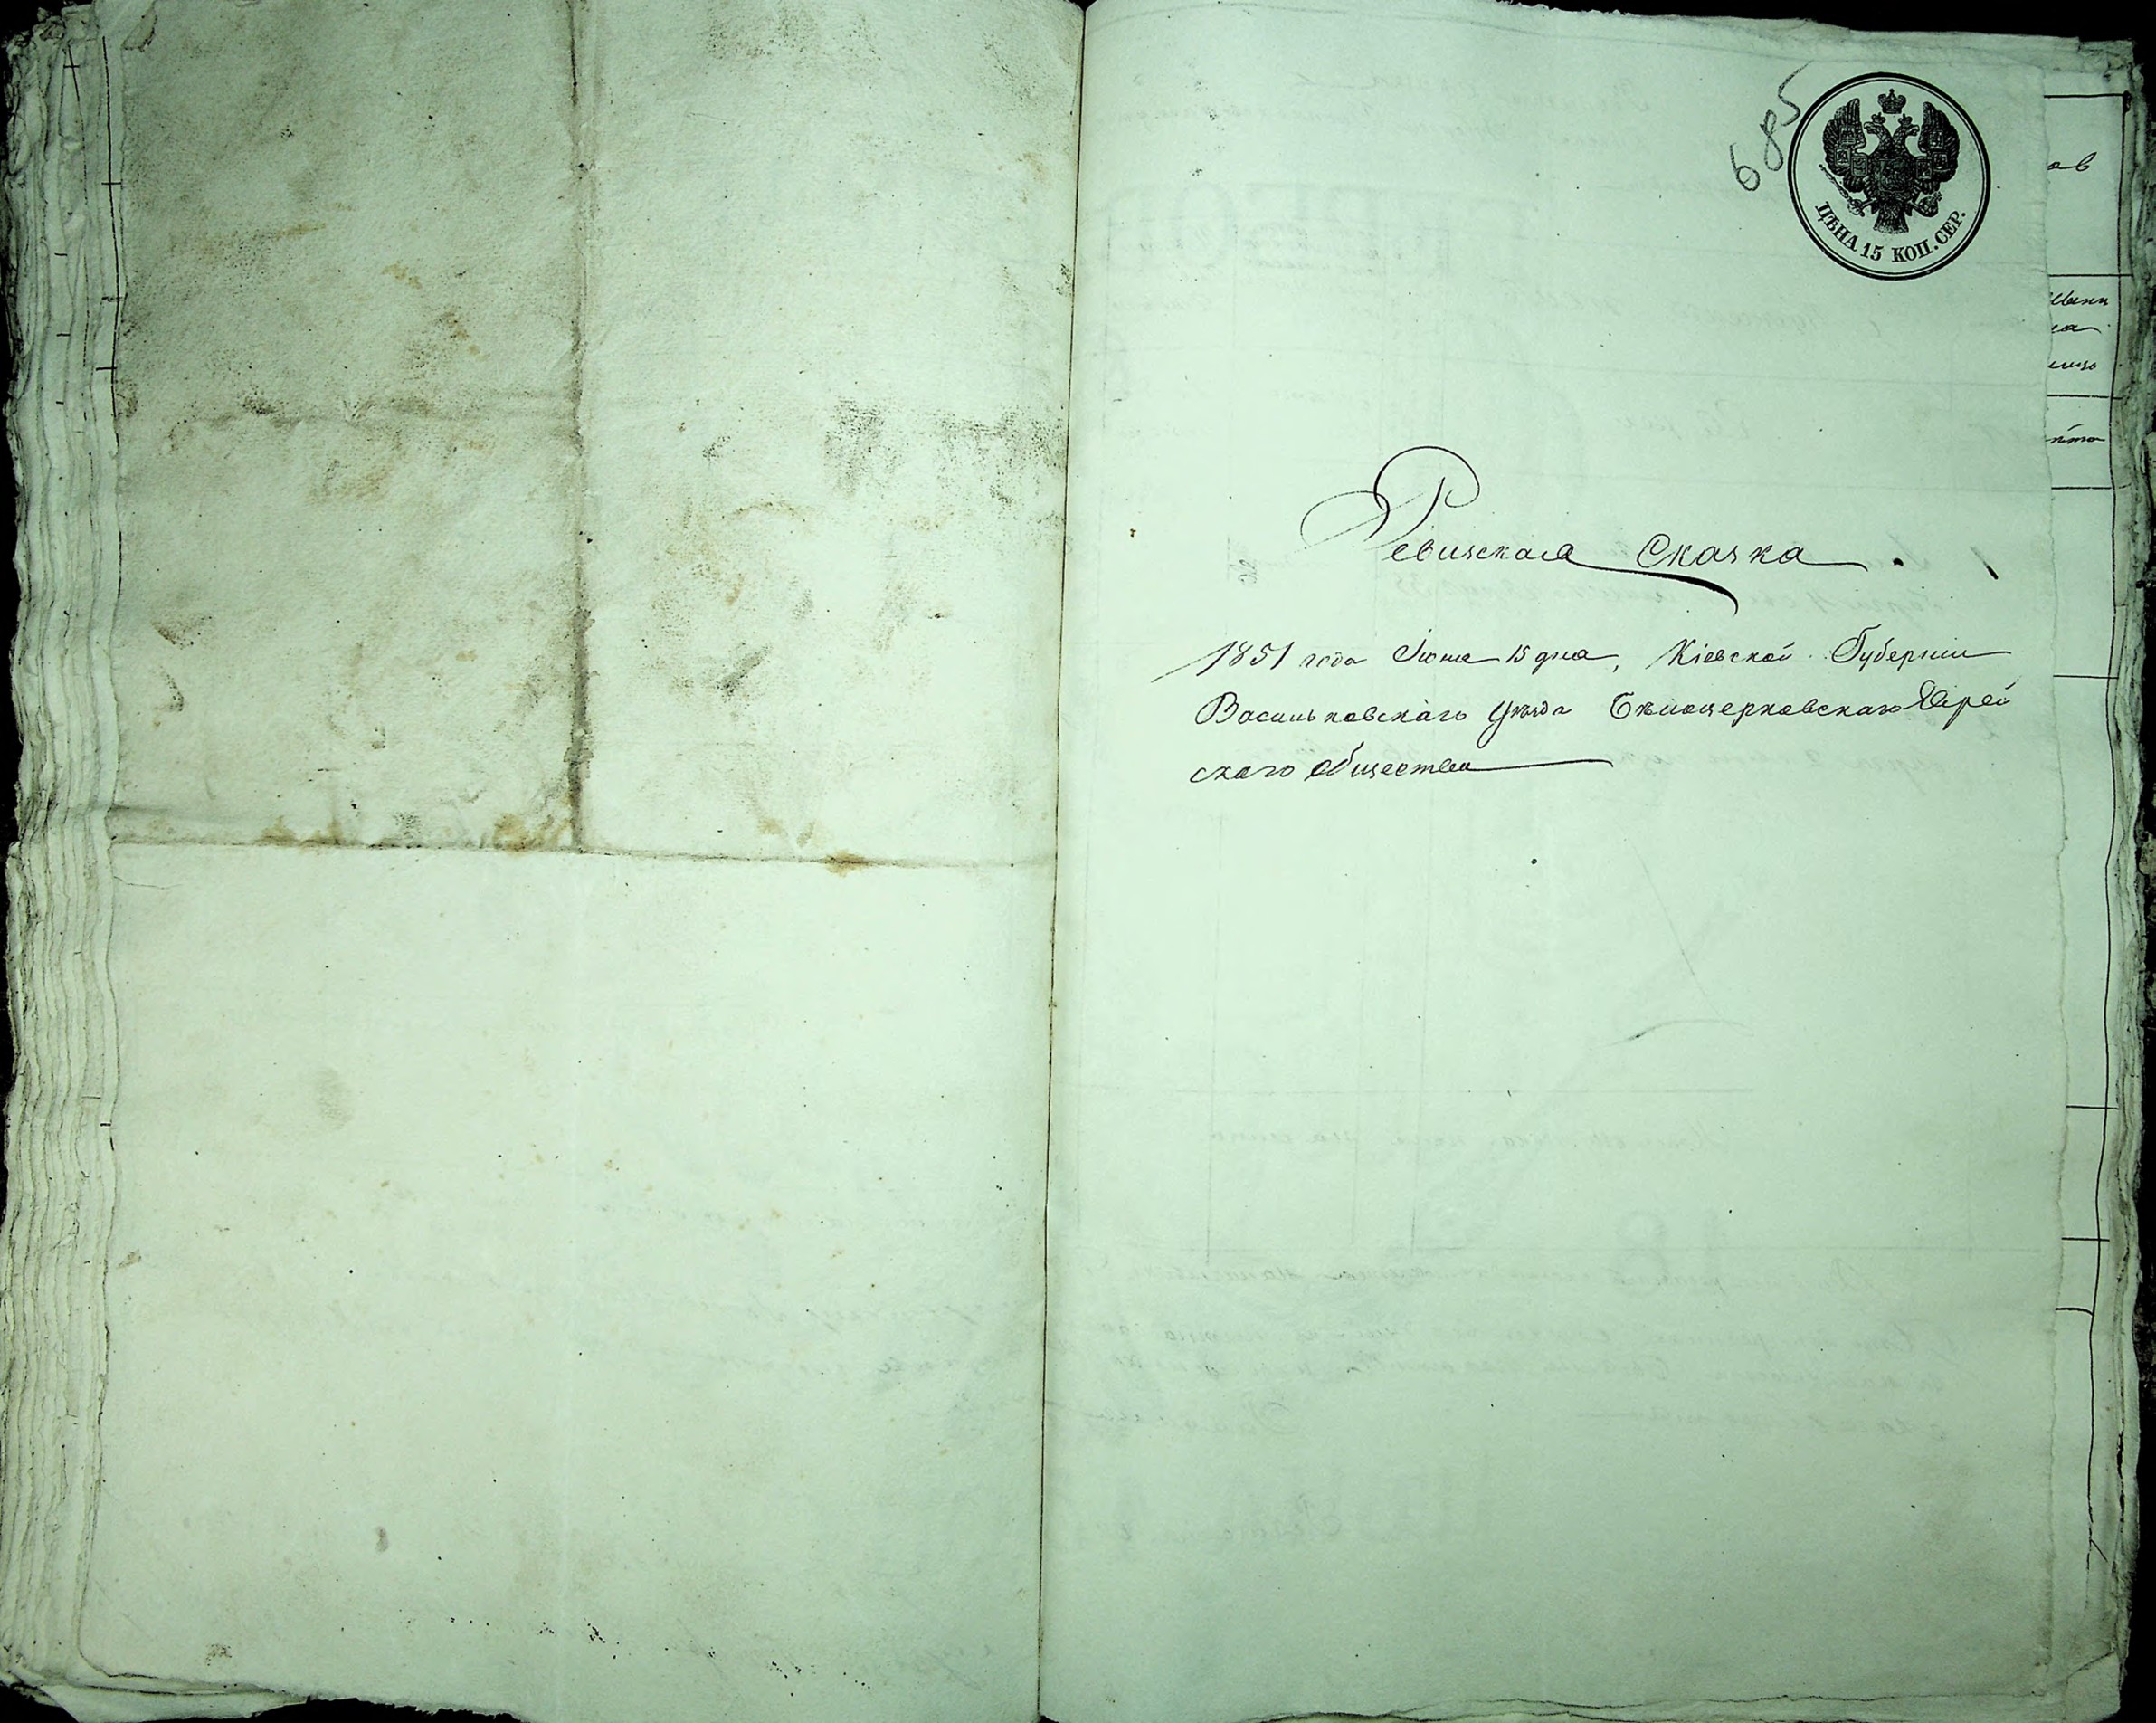 685
ЦѢНА 15 КОП. СЕР.
Ревизская Сказка
1851 года Июня 15 дня, Кіевской Губерніи
Васильковскаго Уѣзда Бѣлоцерковскаго Еврей
скаго Общества